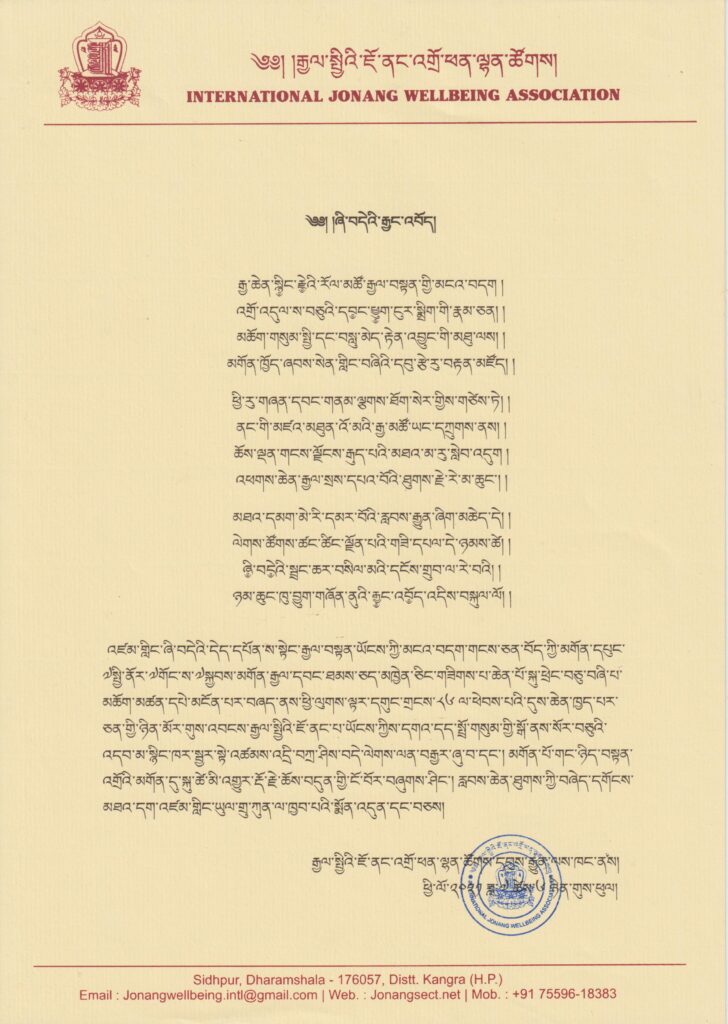 ༄༅། །རྒྱལ་སྤྱིའི་ཇོ་ནང་འགྲོ་ཕན་ལྷན་ཚོགས།
INTERNATIONAL JONANG WELLBEING ASSOCIATION
༄༅། །ཞི་བདེའི་རྒྱང་འབོད།
རྒྱ་ཆེན་སྙིང་རྗེའི་རོལ་མཚོ་རྒྱལ་བསྟན་གྱི་མངའ་བདག །
འགྲོ་འདུལ་ས་བཅུའི་དབང་ཕྱུག་ངུར་སྨྲིག་གི་རྣམ་ཅན། །
མཆོག་གསུམ་སྤྱི་དང་བསླུ་མེད་རྟེན་འབྱུང་གི་མཐུ་ལས། །
མགོན་ཁྱོད་ཞབས་སེན་གླིང་བཞིའི་དབུ་རྩེ་རུ་བརྟན་མཛོད། །
ཕྱི་རུ་གཞན་དབང་གནམ་ལྕགས་ཐོག་སེར་གྱིས་གཙེས་ཏེ། །
ནང་གི་མཛའ་མཐུན་འོ་མའི་རྒྱ་མཚོ་ཡང་དཀྲུགས་ནས། །
ཆོས་ལྡན་གངས་ལྗོངས་རྒུད་པའི་མཐའ་མ་རུ་སླེབ་འདུག །
འཕགས་ཆེན་རྒྱལ་སྲས་དཔའ་བོའི་ཐུགས་རྗེ་རེ་མ་ཆུང་། །
མཐའ་དམག་མེ་རི་དམར་པོའི་རླབས་རྒྱུན་ཞིག་མཆེད་དེ། །
ལེགས་ཚོགས་ཚང་ཚིང་ལྗོན་པའི་གཟི་དཔལ་དེ་ཉམས་ཚེ། །
ཞི་བདེའི་སྦྲང་ཆར་བསིལ་མའི་དངོས་གྲུབ་ལ་རེ་བའི། །
ཉམ་ཆུང་ཁུ་བྱུག་གཞོན་ནུའི་རྒྱང་འབོད་འདིས་བསྐུལ་ལོ། །
འཛམ་གླིང་ཞི་བདེའི་དེད་དཔོན་ས་སྟེང་རྒྱལ་བསྟན་ཡོངས་ཀྱི་མངའ་བདག་གངས་ཅན་བོད་ཀྱི་མགོན་དཔུང་
༧སྤྱི་ནོར་༧གོང་ས་༧སྐྱབས་མགོན་རྒྱལ་དབང་ཐམས་ཅད་མཁྱེན་ཅིང་གཟིགས་པ་ཆེན་པོ་སྐུ་ཕྲེང་བཅུ་བཞི་པ་
མཆོག་མཚན་དཔེ་མངོན་པར་བཞད་ནས་ཕྱི་ལུགས་ལྟར་དགུང་གྲངས་༨༦ ལ་ཕེབས་པའི་དུས་ཆེན་ཁྱད་པར་
ཅན་གྱི་ཉིན་མོར་གུས་འབངས་རྒྱལ་སྤྱིའི་ཇོ་ནང་པ་ཡོངས་ཀྱིས་དགའ་དད་སྤྲོ་གསུམ་གྱི་སྒོ་ནས་སོར་བཅུའི་
འདབ་མ་སྙིང་ཁར་སྦྱར་སྟེ་འཚམས་འདྲི་བཀྲ་ཤིས་བདེ་ལེགས་ལན་བརྒྱར་ཞུ་བ་དང་། མགོན་པོ་གང་ཉིད་བསྟན་
འགྲོའི་མགོན་དུ་སྐུ་ཚེ་མི་འགྱུར་རྡོ་རྗེ་ཆོས་བདུན་གྱི་ངོ་བོར་བཞུགས་ཤིང་། རླབས་ཆེན་ཐུགས་ཀྱི་བཞེད་དགོངས་
མཐའ་དག་འཛམ་གླིང་ཡུལ་གྲུ་ཀུན་ལ་ཁྱབ་པའི་སྨོན་འདུན་དང་བཅས།
རྒྱལ་སྤྱིའི་ཇོ་ནང་འགྲོ་ཕན་ལྷན་ཚོགས་དབུས་རྒྱུན་ལས་ཁང་ནས།
ཕྱི་ལོ་༢༠༢༡ ཟླ་༧ ཚེས་༦ ཉིན་གུས་ཕུལ།
INTERNATIONAL JONANG WELLBEING ASSOCIATION
Sidhpur, Dharamshala - 176057, Distt. Kangra (H.P.)
Email : Jonangwellbeing.intl@gmail.com | Web. : Jonangsect.net | Mob. : +91 75596-18383